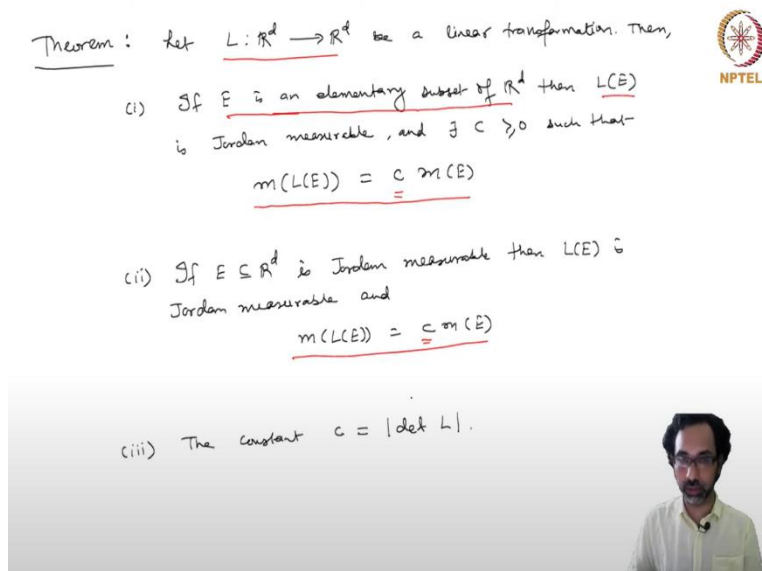 Theorem : Let L : ℝᵈ ⟶ ℝᵈ be a linear transformation. Then,
NPTEL
(i) If E is an elementary subset of ℝᵈ then L(E)
is Jordan measurable, and ∃ C ⩾ 0 such that
m(L(E)) = c m(E)
(ii) If E ⊆ ℝᵈ is Jordan measurable then L(E) is
Jordan measurable and
m(L(E)) = c m(E)
(iii) The constant c = |det L|.